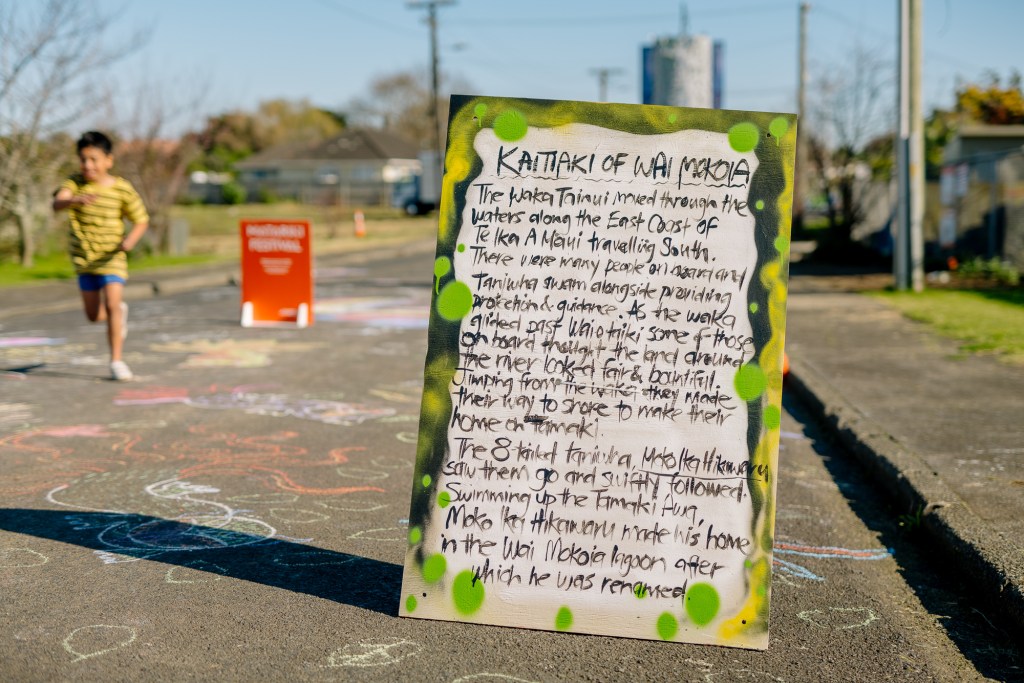 MATARIKI
FESTIVAL
KAITIAKI OF WAI MOKOIA
The Waka Tainui moved through the
waters along the East Coast of
Te Ika A Maui travelling South.
There were many people on board and
Taniwha swam alongside providing
protection & guidance. As the waka
glided past Waiotaiki some of those
on board thought the land around
the river looked fair & bountiful.
Jumping from the waka they made
their way to shore to make their
home on Tamaki.
The 8-tailed taniwha, Moko Ika Hikuwaru
saw them go and swiftly followed.
Swimming up the Tamaki Awa
Moko Ika Hikuwaru made his home
in the Wai Mokoia lagoon after
which he was renamed